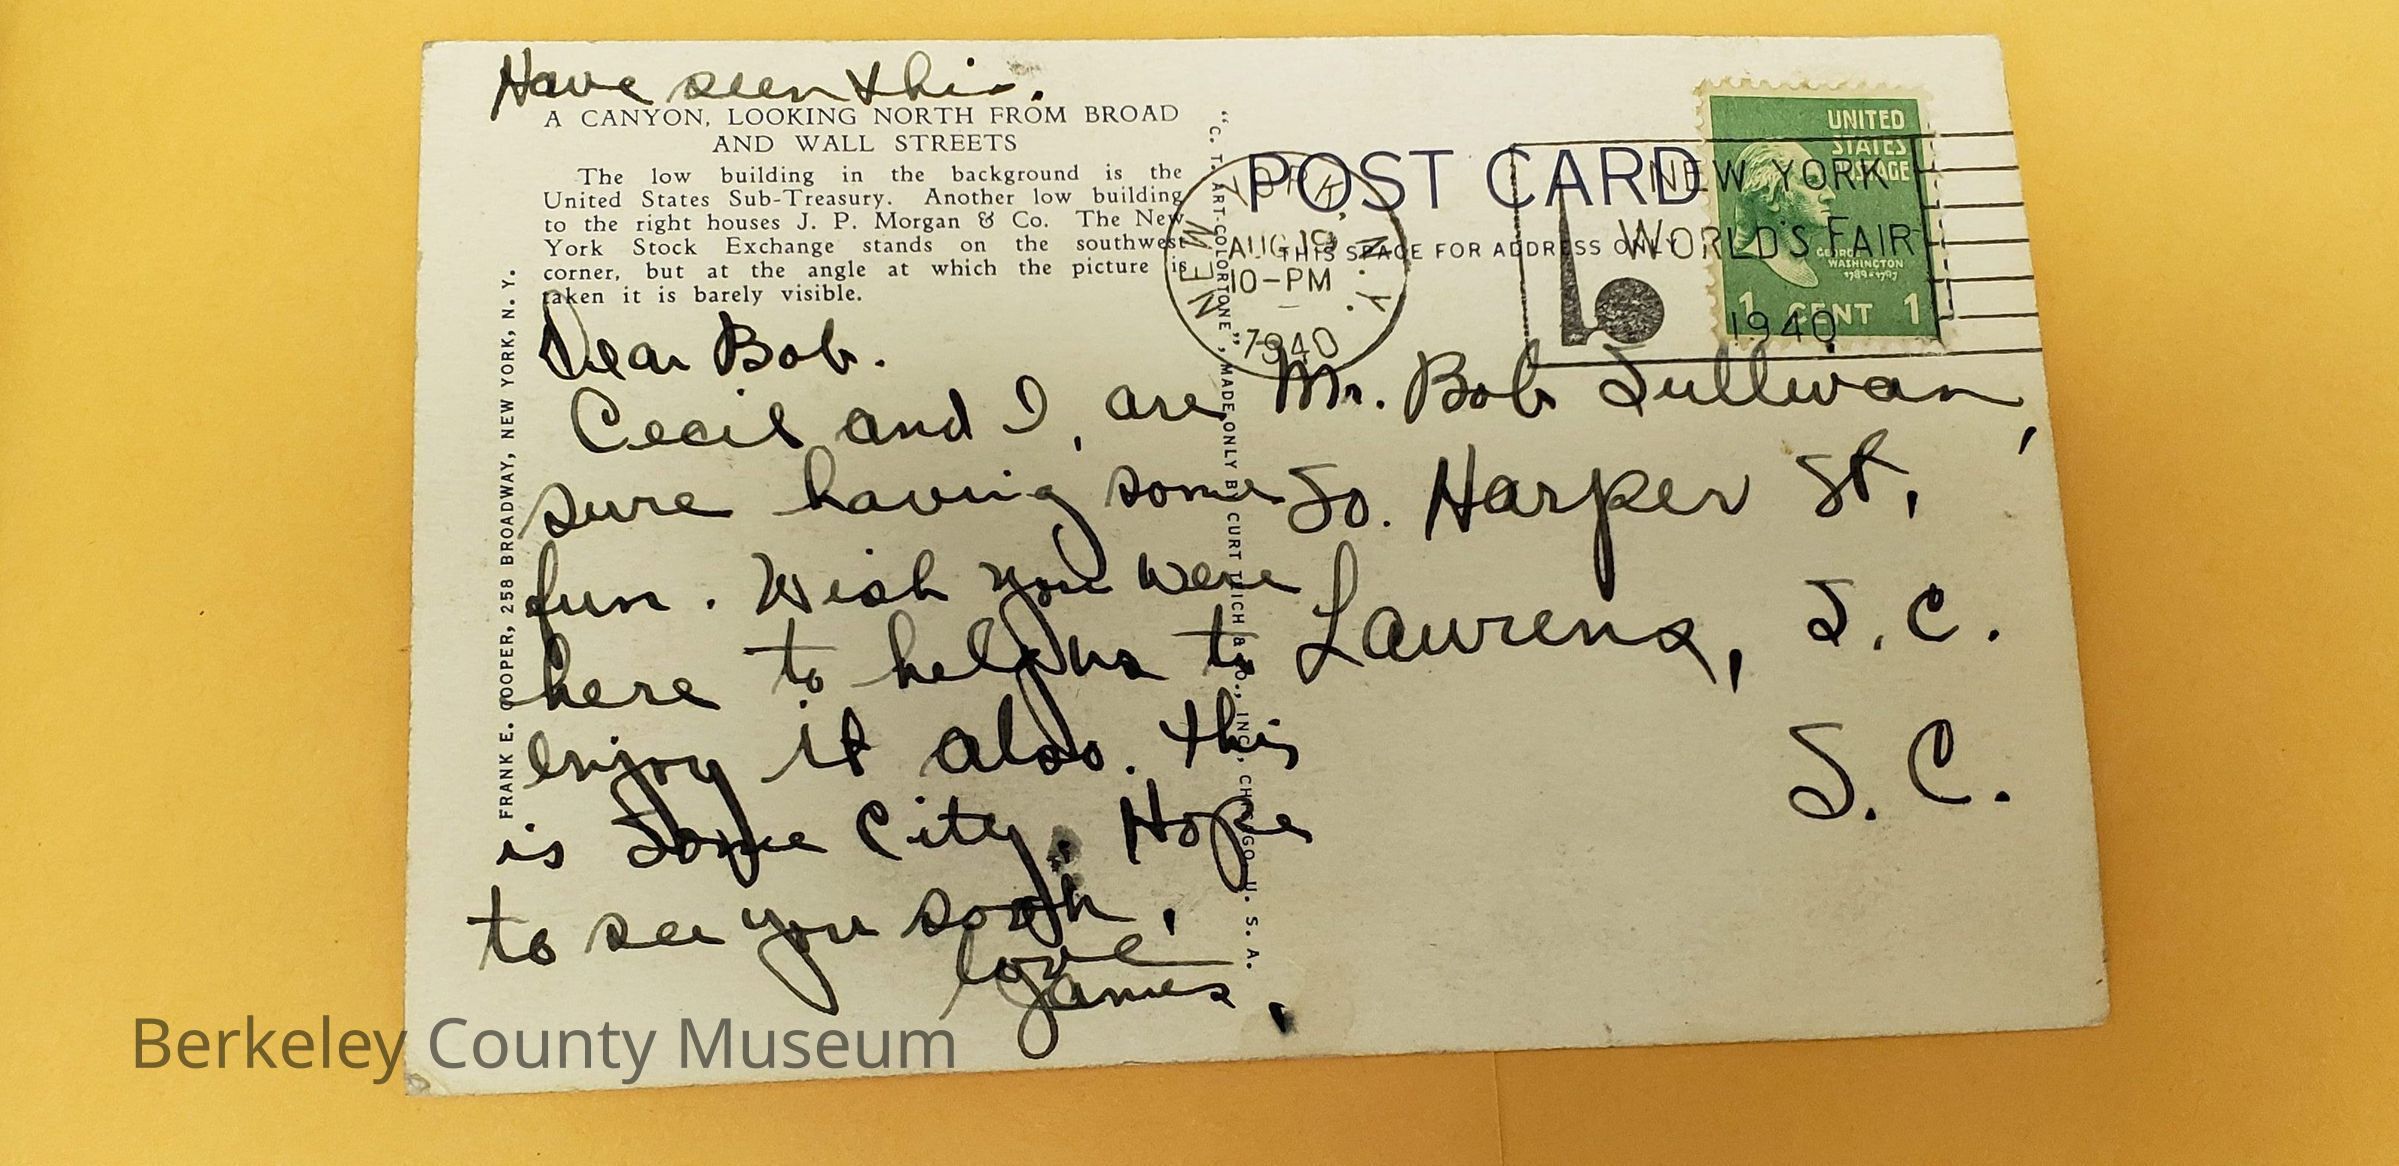 Have seen this.
A CANYON, LOOKING NORTH FROM BROAD
AND WALL STREETS
The low building in the background is the
United States Sub-Treasury. Another low building
to the right houses J. P. Morgan & Co. The New
York Stock Exchange stands on the southwest
corner, but at the angle at which the picture is
taken it is barely visible.
Dear Bob.
Cecil and I, are
sure having some
fun. Wish you were
here to help us to
enjoy it also. This
is Some City. Hope
to see you soon,
love
James.
FRANK E. COOPER, 258 BROADWAY, NEW YORK, N. Y.
"C. T. ART-COLORTONE", MADE ONLY BY CURT TEICH & CO., INC., CHICAGO, U. S. A.
POST CARD
THIS SPACE FOR ADDRESS ONLY
NEW YORK, N.Y.
AUG 19
10-PM
1940
NEW YORK
WORLD'S FAIR
1940
UNITED
STATES
POSTAGE
GEORGE
WASHINGTON
1789-1797
1 CENT 1
Mr. Bob Sullivan,
So. Harper St,
Laurens, S. C.
S. C.
Berkeley County Museum